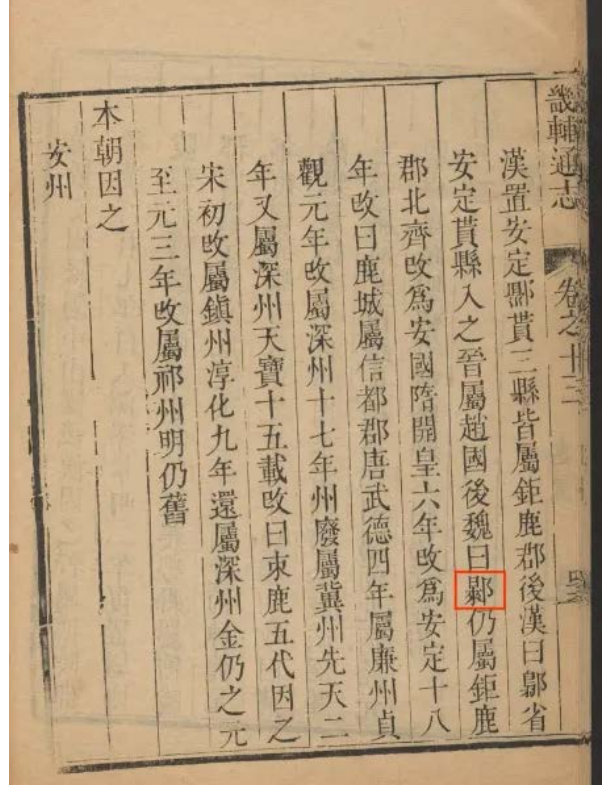 畿輔通志 卷之十三
漢置安定鄡貰三縣皆屬鉅鹿郡後漢曰鄡省
安定貰縣入之晉屬趙國後魏曰鄡仍屬鉅鹿
郡北齊改爲安國隋開皇六年改爲安定十八
年改曰鹿城屬信都郡唐武德四年屬廉州貞
觀元年改屬深州十七年州廢屬冀州先天二
年又屬深州天寶十五載改曰束鹿五代因之
宋初改屬鎮州淳化九年還屬深州金仍之元
至元三年改屬祁州明仍舊
本朝因之
安州